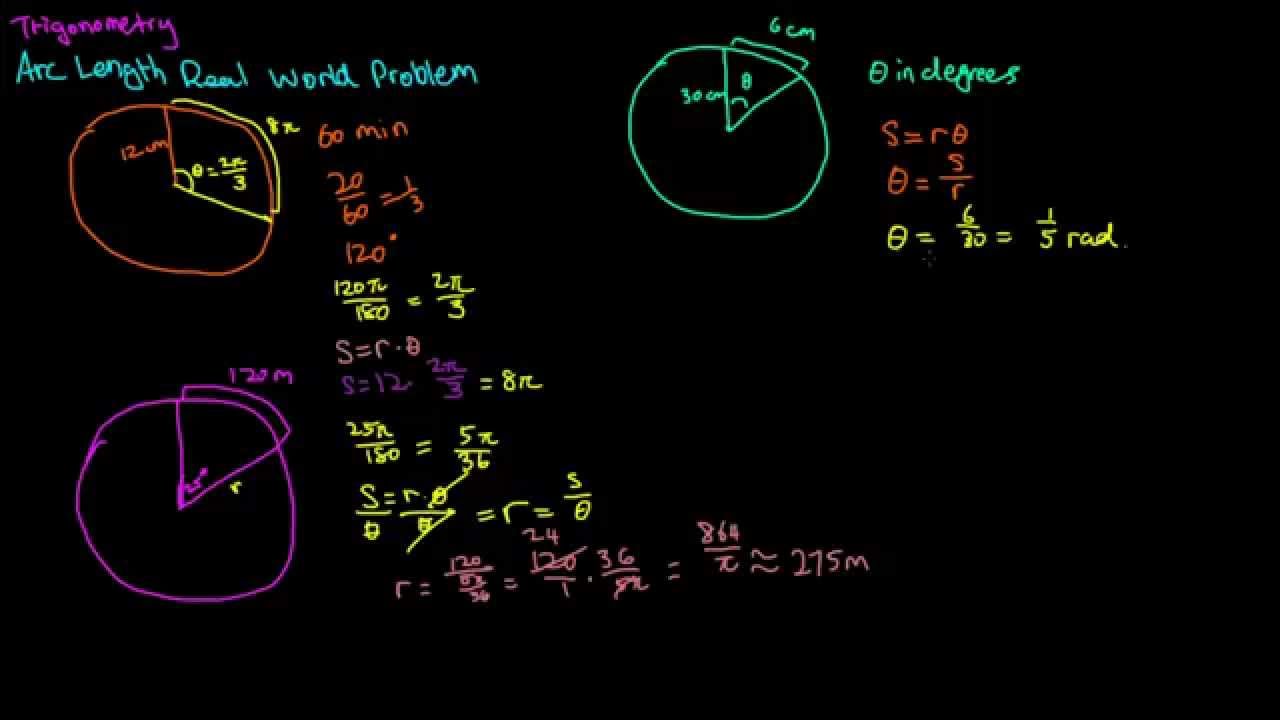 Trigonometry
Arc Length Real World Problem
12cm
θ = 2π/3
8π
60 min
20/60 = 1/3
120°
120π/180 = 2π/3
S = r·θ
S = 12 · 2π/3 = 8π
120 m
25°
r
25π/180 = 5π/36
S/θ = r·θ/θ = r = s/θ
r = 120/(5π/36) = 24 120/1 · 36/5π = 864/π ≈ 275m
6 cm
30 cm
θ
θ in degrees
S = rθ
θ = s/r
θ = 6/30 = 1/5 rad.